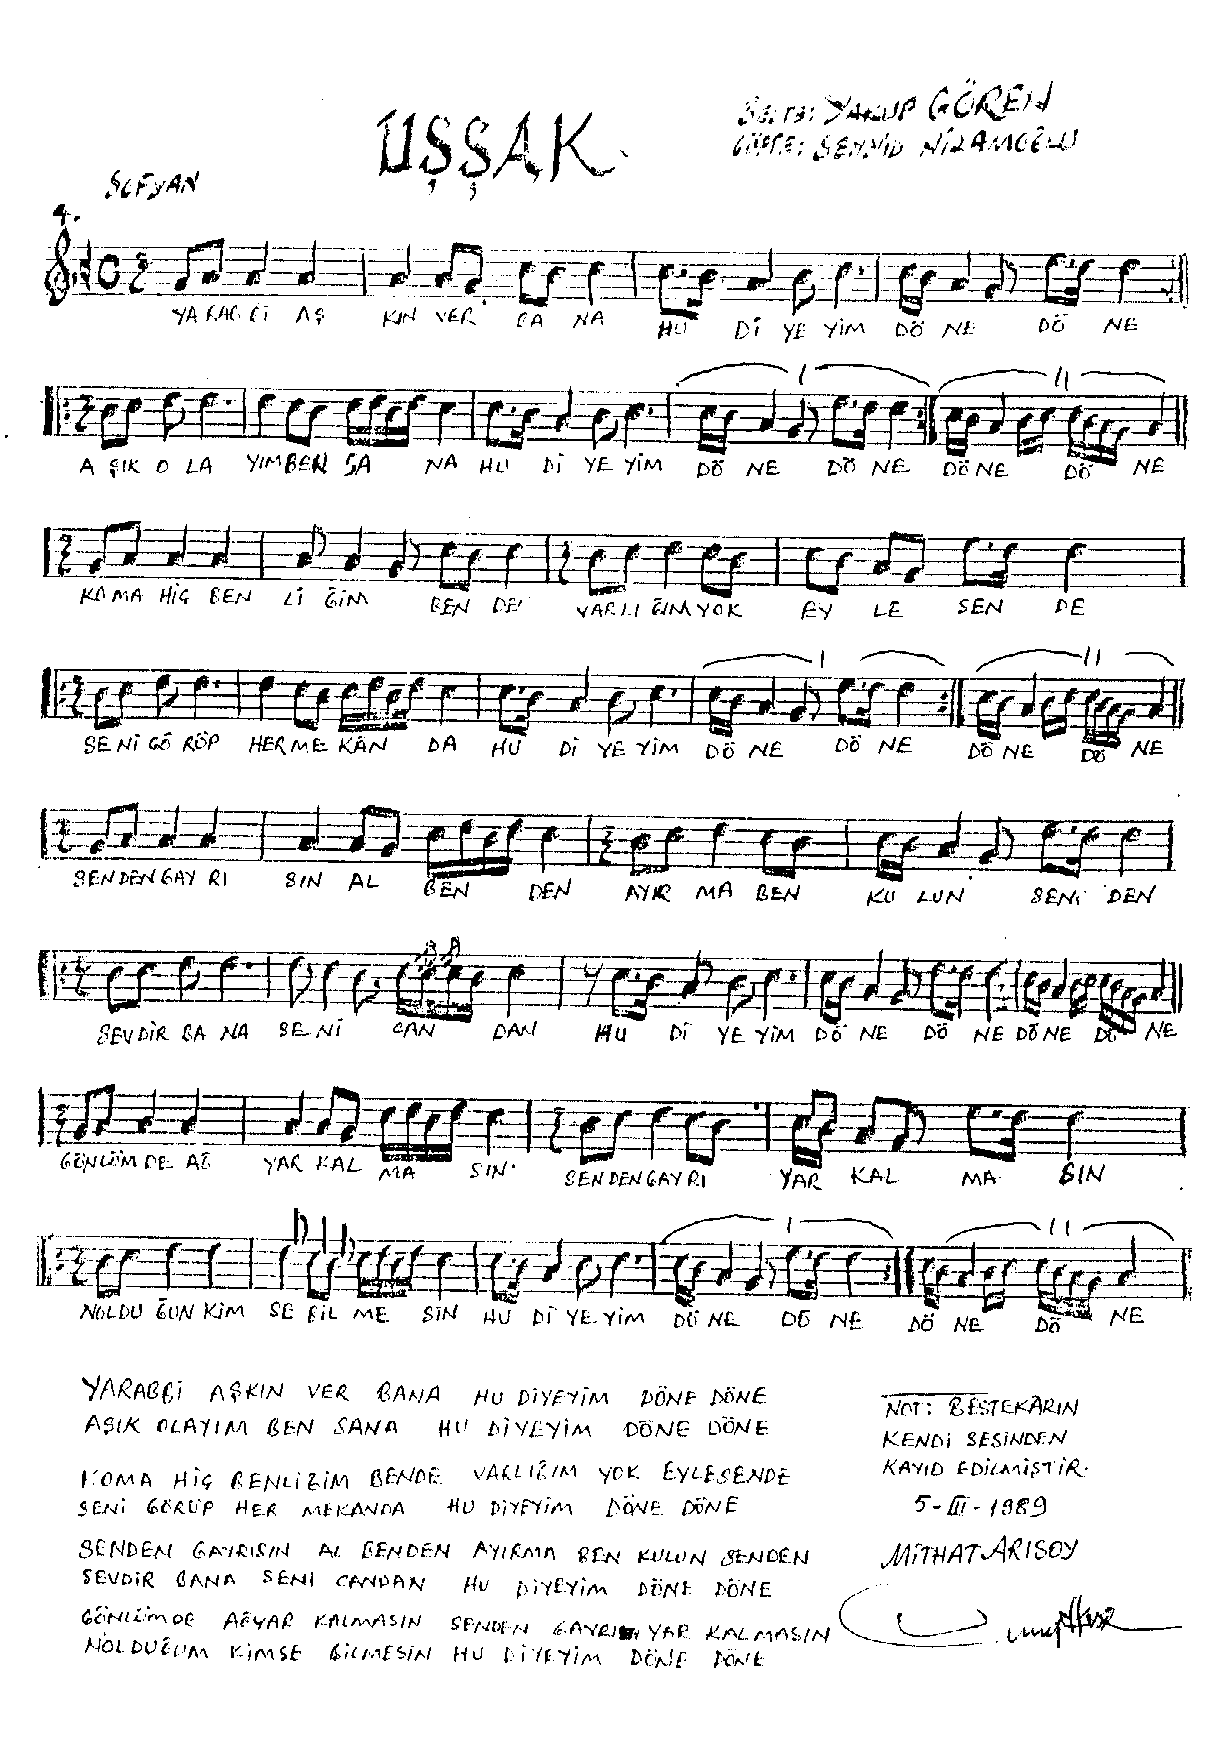 UŞŞAK
BESTE: YAKUP GÖREN
GÜFTE: SEYYİD NİZAMOĞLU
SOFYAN
4.
YARABBİ AŞ KIN VER BA NA HU Dİ YE YİM DÖ NE DÖ NE
I II
A ŞIK O LA YIM BEN SA NA HU Dİ YE YİM DÖ NE DÖ NE DÖNE DÖ NE
KOMA HİÇ BEN Lİ ĞİM BEN DE VARLI ĞIM YOK EY LE SEN DE
I II
SENİ GÖ RÜP HER ME KÂN DA HU Dİ YE YİM DÖ NE DÖ NE DÖ NE DÖ NE
SENDEN GAY RI SIN AL BEN DEN AYIR MA BEN KU LUN SENİ DEN
SEVDİR BA NA SE NI CAN DAN HU Dİ YE YİM DÖ NE DÖ NE DÖ NE DÖ NE
GÖNLÜM DE AĞ YAR KAL MA SIN SENDEN GAYRI YAR KAL MA SIN
I II
NOLDU ĞUN KİM SE BİL ME SİN HU Dİ YE YİM DÖ NE DÖ NE DÖ NE DÖ NE
YARABBİ AŞKIN VER BANA HU DİYEYİM DÖNE DÖNE
AŞIK OLAYIM BEN SANA HU DİYEYİM DÖNE DÖNE
KOMA HİÇ BENLİĞİM BENDE VARLIĞIM YOK EYLESENDE
SENİ GÖRÜP HER MEKANDA HU DİYEYİM DÖNE DÖNE
SENDEN GAYRISIN AL BENDEN AYIRMA BEN KULUN SENDEN
SEVDİR BANA SENI CANDAN HU DİYEYİM DÖNE DÖNE
GÖNLÜMDE AĞYAR KALMASIN SENDEN GAYRI YAR KALMASIN
NOLDUĞUM KİMSE BİLMESİN HU DİYEYİM DÖNE DÖNE
NOT: BESTEKÂRIN
KENDİ SESİNDEN
KAYID EDİLMİŞTİR.
5-III-1989
MİTHAT ARISOY